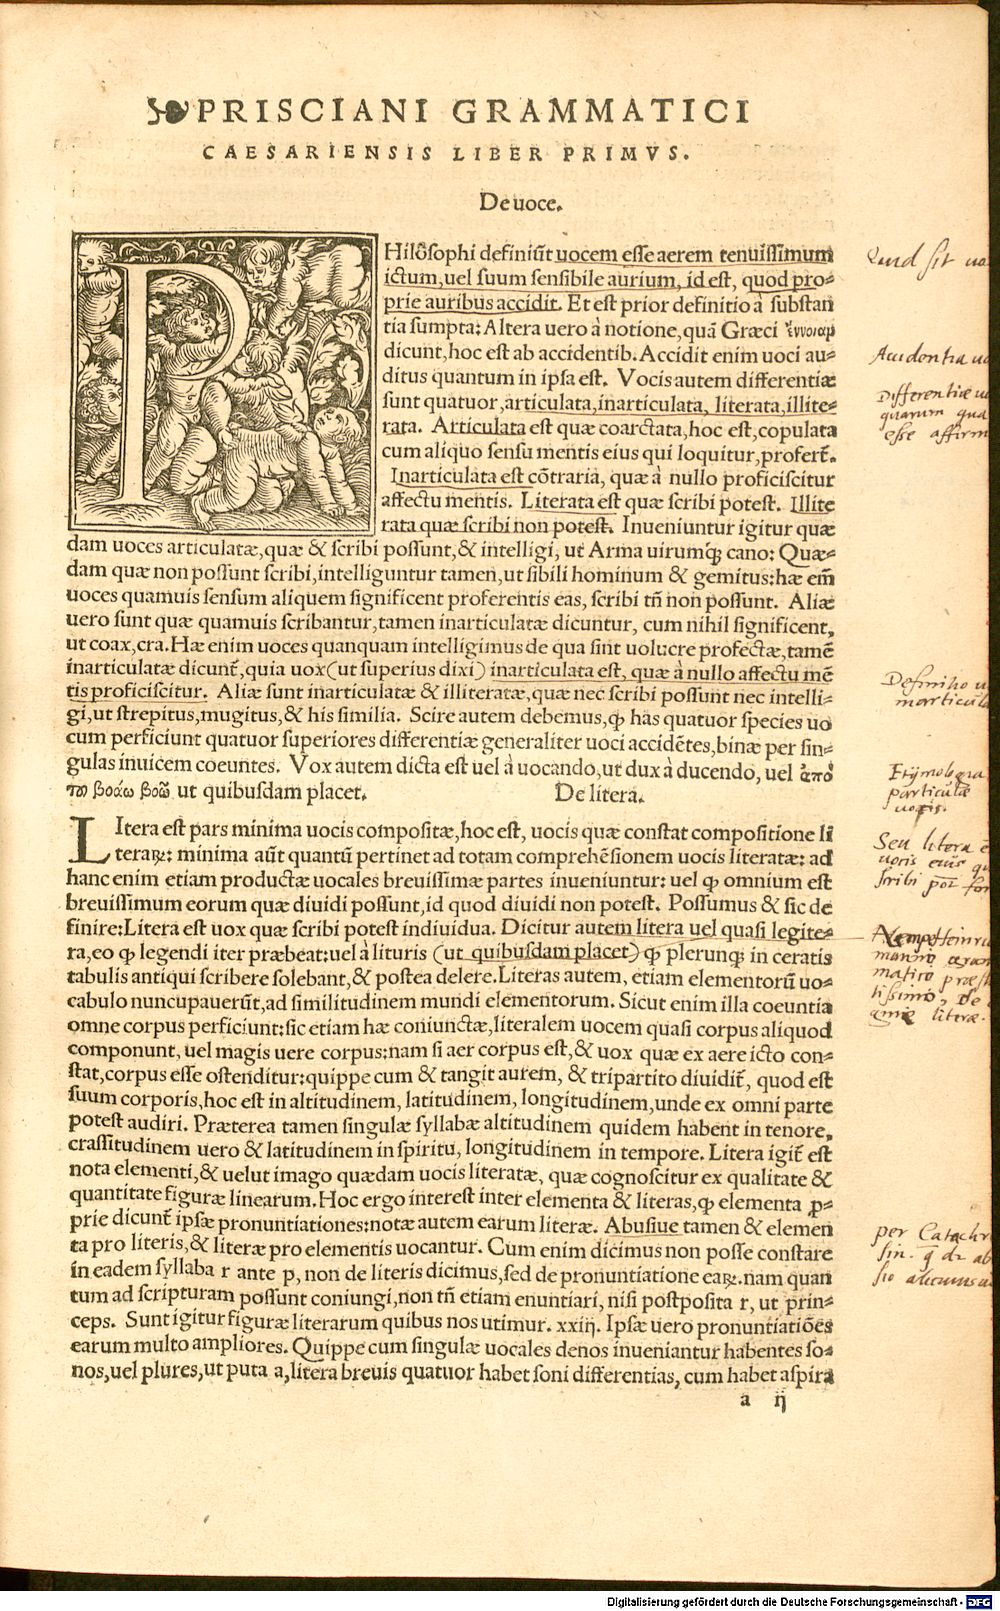 PRISCIANI GRAMMATICI
CAESARIENSIS LIBER PRIMVS.
De uoce.
PHilosophi definiũt uocem esse aerem tenuissimum
ictum, uel suum sensibile aurium, id est, quod pro-
prie auribus accidit. Et est prior definitio à substan
tia sumpta: Altera uero à notione, quã Græci
dicunt, hoc est ab accidentib. Accidit enim uoci au-
ditus quantum in ipsa est. Vocis autem differentiæ
sunt quatuor, articulata, inarticulata, literata, illite-
rata. Articulata est quæ coarctata, hoc est, copulata
cum aliquo sensu mentis eius qui loquitur, profert̃.
Inarticulata est cõtraria, quæ à nullo proficiscitur
affectu mentis. Literata est quæ scribi potest. Illite
rata quæ scribi non potest. Inueniuntur igitur quæ
dam uoces articulatæ, quæ & scribi possunt, & intelligi, ut Arma uirumq́; cano: Quæ-
dam quæ non possunt scribi, intelliguntur tamen, ut sibili hominum & gemitus: hæ em̃
uoces quamuis sensum aliquem significent proferentis eas, scribi tñ non possunt. Aliæ
uero sunt quæ quamuis scribantur, tamen inarticulatæ dicuntur, cum nihil significent,
ut coax, cra. Hæ enim uoces quanquam intelligimus de qua sint uolucre profectæ, tamẽ
inarticulatæ dicunt̃, quia uox (ut superius dixi) inarticulata est, quæ à nullo affectu mẽ
tis proficiscitur. Aliæ sunt inarticulatæ & illiteratæ, quæ nec scribi possunt nec intelli-
gi, ut strepitus, mugitus, & his similia. Scire autem debemus, ꝙ has quatuor species uo
cum perficiunt quatuor superiores differentiæ generaliter uoci accidẽtes, binæ per sin-
gulas inuicem coeuntes. Vox autem dicta est uel à uocando, ut dux à ducendo, uel ἀπὸ
τοῦ βοάω βοῶ ut quibusdam placet.
De litera.
LItera est pars minima uocis compositæ, hoc est, uocis quæ constat compositione li
teraꝝ: minima aũt quantũ pertinet ad totam comprehẽsionem uocis literatæ: ad
hanc enim etiam productæ uocales breuissimæ partes inueniuntur: uel ꝙ omnium est
breuissimum eorum quæ diuidi possunt, id quod diuidi non potest. Possumus & sic de
finire: Litera est uox quæ scribi potest indiuidua. Dicitur autem litera uel quasi legite-
ra, eo ꝙ legendi iter præbeat: uel à lituris (ut quibusdam placet) ꝙ plerunq; in ceratis
tabulis antiqui scribere solebant, & postea delere. Literas autem, etiam elementorũ uo-
cabulo nuncupauerũt, ad similitudinem mundi elementorum. Sicut enim illa coeuntia
omne corpus perficiunt: sic etiam hæ coniunctæ, literalem uocem quasi corpus aliquod
componunt, uel magis uere corpus: nam si aer corpus est, & uox quæ ex aere icto con-
stat, corpus esse ostenditur: quippe cum & tangit aurem, & tripartito diuidit̃, quod est
suum corporis, hoc est in altitudinem, latitudinem, longitudinem, unde ex omni parte
potest audiri. Præterea tamen singulæ syllabæ altitudinem quidem habent in tenore,
crassitudinem uero & latitudinem in spiritu, longitudinem in tempore. Litera igit̃ est
nota elementi, & uelut imago quædam uocis literatæ, quæ cognoscitur ex qualitate &
quantitate figuræ linearum. Hoc ergo interest inter elementa & literas, ꝙ elementa ꝓ-
prie dicunt̃ ipsæ pronuntiationes: notæ autem earum literæ. Abusiue tamen & elemen
ta pro literis, & literæ pro elementis uocantur. Cum enim dicimus non posse constare
in eadem syllaba r ante p, non de literis dicimus, sed de pronuntiatione eaꝝ. nam quan
tum ad scripturam possunt coniungi, non tñ etiam enuntiari, nisi postposita r, ut prin-
ceps. Sunt igitur figuræ literarum quibus nos utimur. xxiij. Ipsæ uero pronuntiatiões
earum multo ampliores. Quippe cum singulæ uocales denos inueniantur habentes so-
nos, uel plures, ut puta a, litera breuis quatuor habet soni differentias, cum habet aspira
a ij
Quid sit
Differentiæ
quarum
esse
Definitio
inarticula
Etijmologia
particulæ
uocis.
Seu litera
uocis eius
scribi
matico
tissimo, De
literæ.
per Catachr
sin.
Digitalisierung gefördert durch die Deutsche Forschungsgemeinschaft - DFG